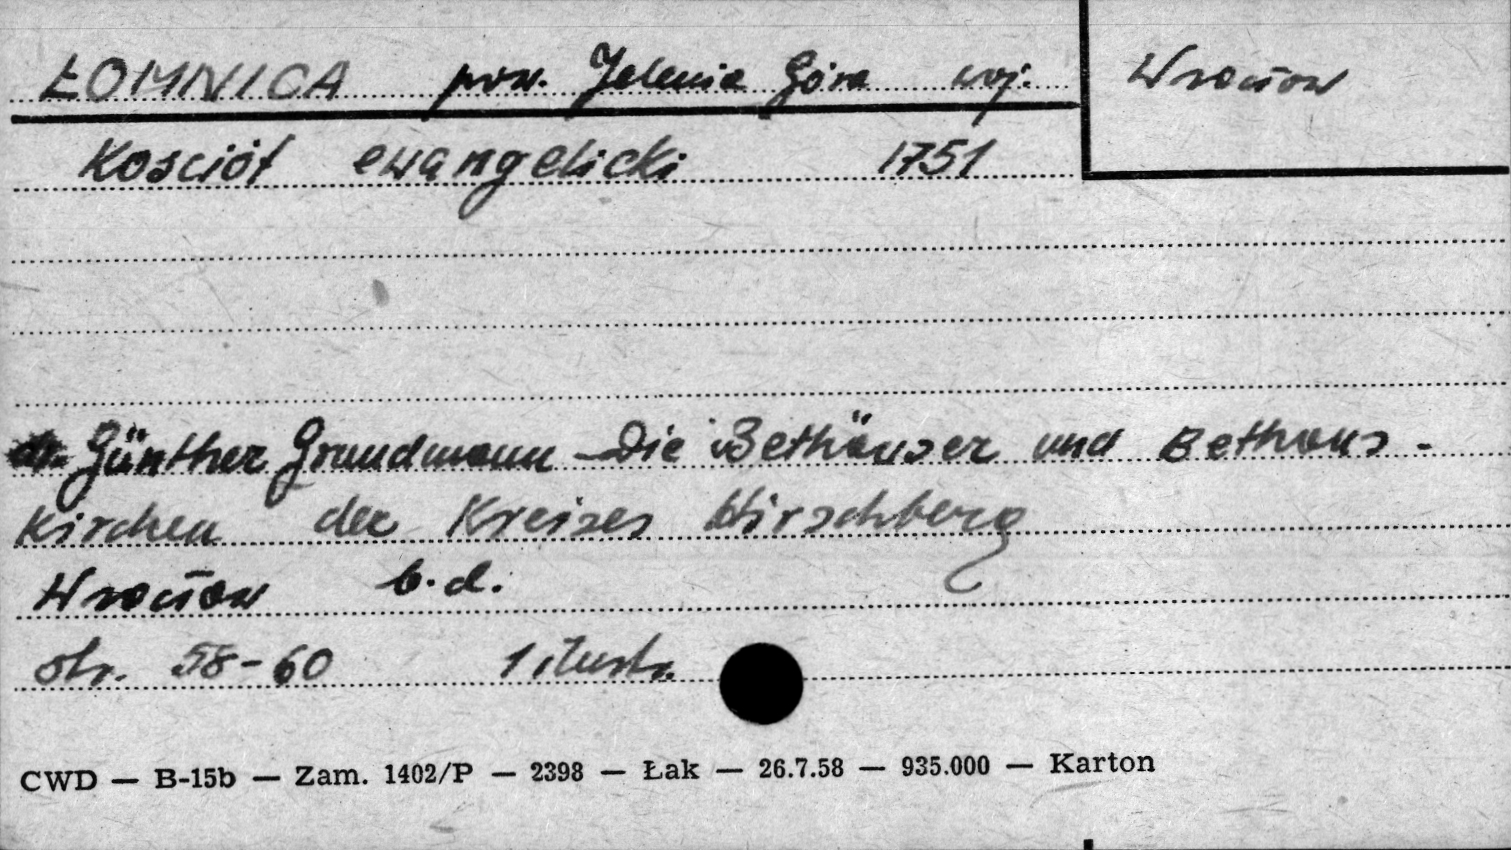 ŁOMNICA pow. Jelenia Góra woj. Wrocław
Kościół ewangelicki 1751
Günther Grundmann – Die Bethäuser und Bethaus-
kirchen des Kreises Hirschberg
Wrocław b.d.
str. 58-60 1 ilustr.
CWD — B-15b — Zam. 1402/P — 2398 — Łak — 26.7.58 — 935.000 — Karton